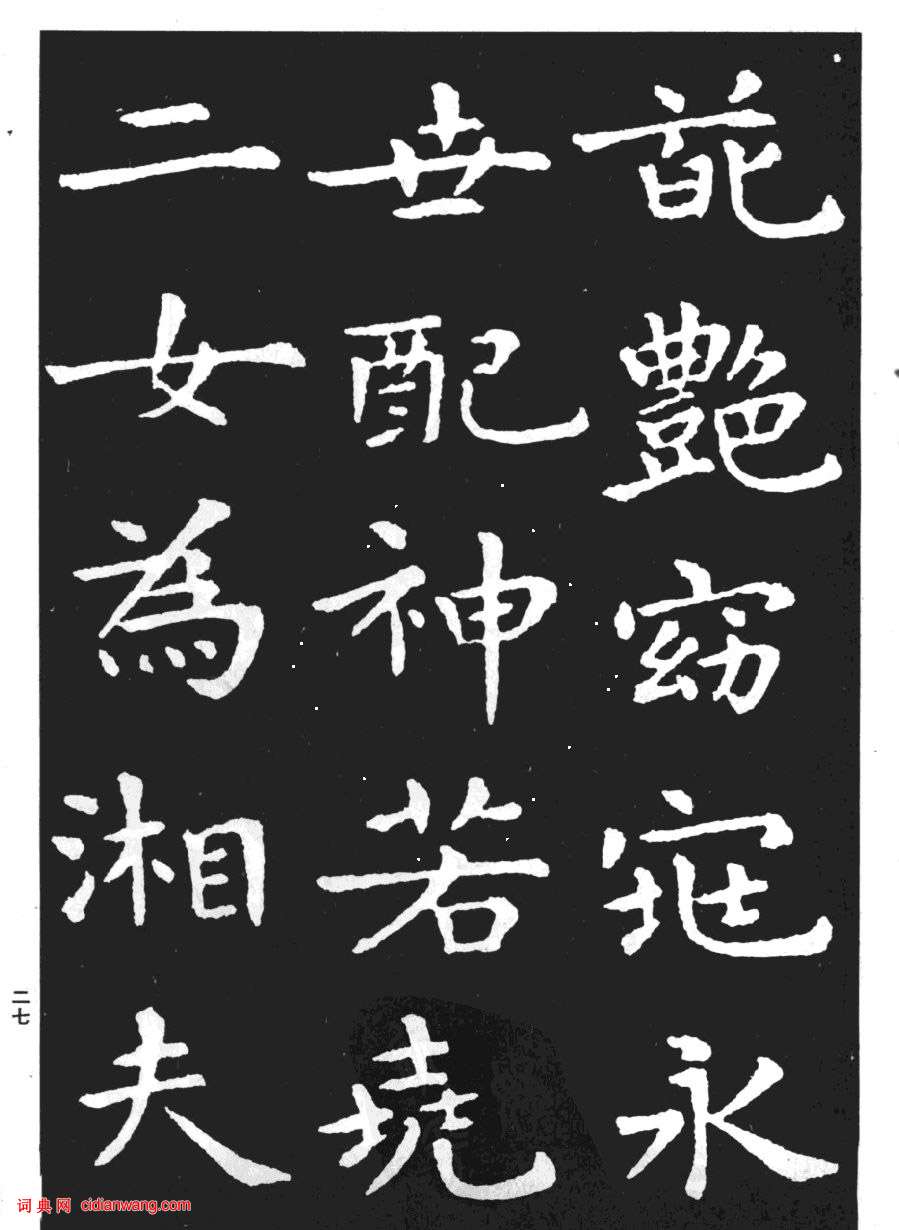 葩艷窈窕永
世配神若堯
二女為湘夫
二七
词典网 cidianwang.com